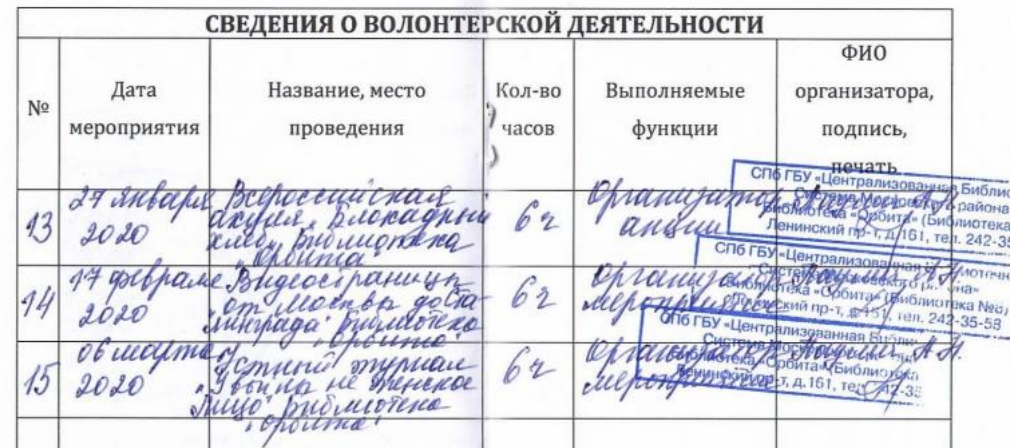 СВЕДЕНИЯ О ВОЛОНТЕРСКОЙ ДЕЯТЕЛЬНОСТИ
№
Дата
мероприятия
Название, место
проведения
Кол-во
часов
Выполняемые
функции
ФИО
организатора,
подпись,
печать
13
27 января
2020
Всероссийская
акция "Блокадный
хлеб" Библиотека
"Орбита"
6 ч
Организатор
акции
СПб ГБУ «Централизованная Библио
Система Московского района
Библиотека «Орбита» (Библиотека
Ленинский пр-т, д.161, тел. 242-35
14
17 февраля
2020
"Видеостраницы
от Москвы до Ста
линграда" Библиотека
"Орбита"
6 ч
Организатор
мероприятие
СПб ГБУ «Централизованная
Библиотека «Орбита» (Библиотека №8)
Ленинский пр-т, д.161, тел. 242-35-58
15
06 марта
2020
Устный журнал
"У войны не женское
лицо" Библиотека
"Орбита"
6 ч
Организатор
мероприятие
СПб ГБУ «Централизованная Библи
Система
Библиотека «Орбита» (Библиотека
Ленинский пр-т, д.161, тел.